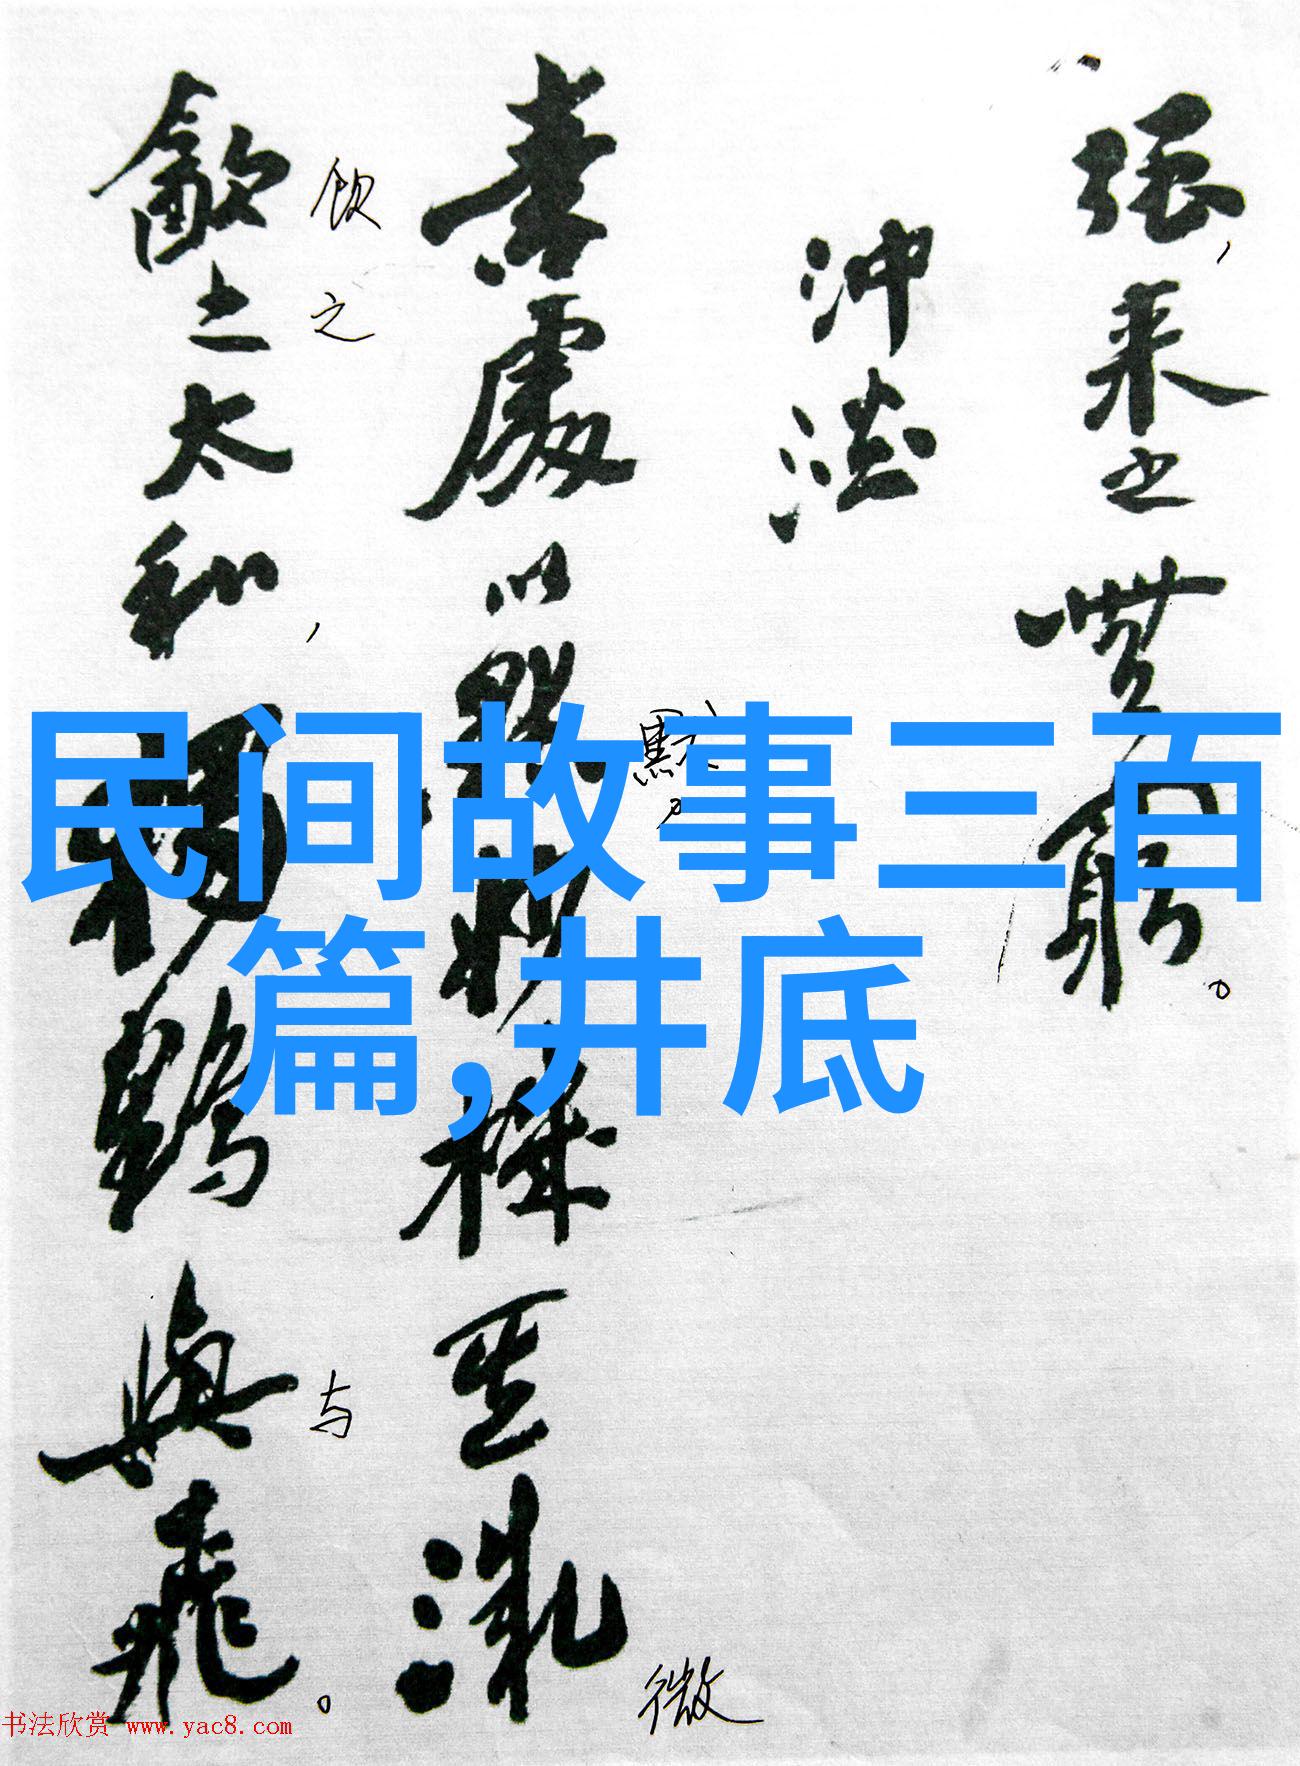 强，来之無窮。
沖澹
素處以默妙機其微
默。
微
飲之太和，獨鶴與飛。
饮
之
与
民间故事三百
篇,井底
书法欣赏 www.yac8.com